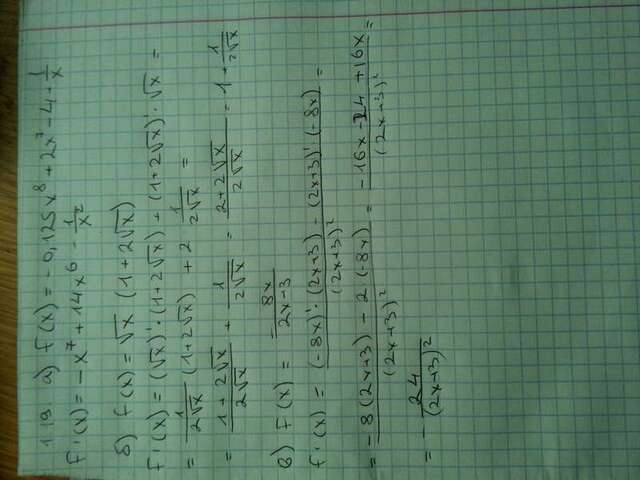 119. а) f(x) = -0,125x⁸ + 2x⁷ - 4 + 1/x
f'(x) = -x⁷ + 14x⁶ - 1/x²
б) f(x) = √x (1+2√x)
f'(x) = (√x)'·(1+2√x) + (1+2√x)'·√x =
= 1/(2√x) (1+2√x) + 2 1/(2√x) =
= (1+2√x)/(2√x) + 1/(2√x) = (2+2√x)/(2√x) = 1 + 1/(2√x)
в) f(x) = 8x/(2x-3)
f'(x) = ((-8x)'·(2x+3) - (2x+3)'(-8x))/(2x+3)² =
= (-8(2x+3) - 2(-8x))/(2x+3)² = (-16x-24+16x)/(2x+3)² =
= - 24/(2x+3)²